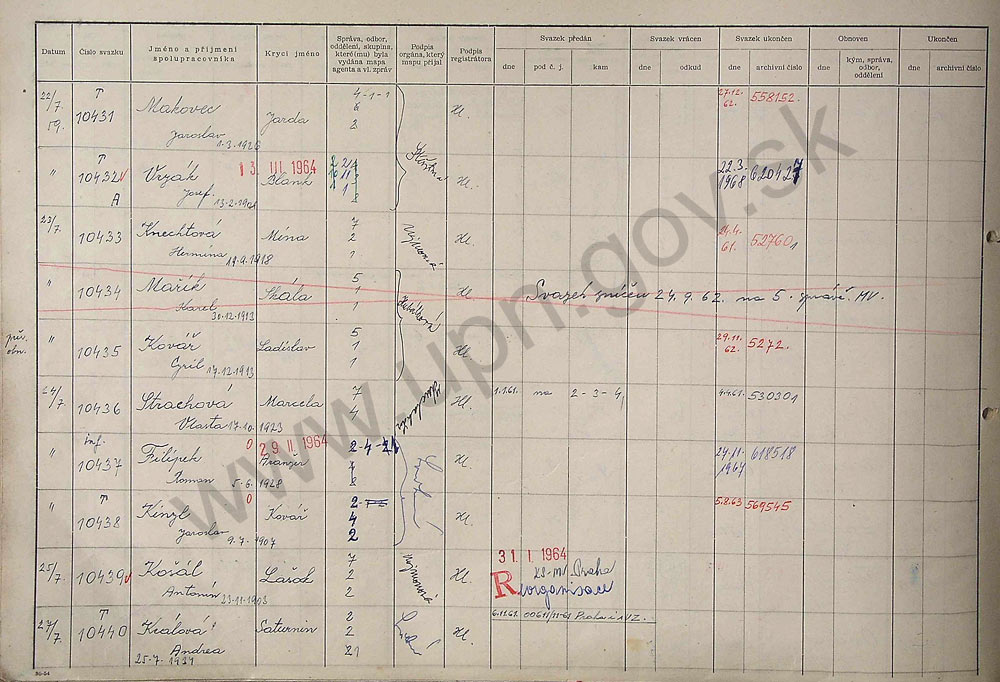 Datum
Číslo svazku
Jméno a příjmení spolupracovníka
Krycí jméno
Správa, odbor, oddělení, skupina, které(mu) byla vydána mapa agenta a vl. zpráv
Podpis orgána, který mapu přijal
Podpis registrátora
Svazek předán
dne
pod č. j.
kam
Svazek vrácen
dne
odkud
Svazek ukončen
dne
archivní číslo
Obnoven
dne
kým, správa, odbor, oddělení
Ukončen
dne
archivní číslo
22/7. 59. T 10431 Makovec Jaroslav 1.3.1926 Jarda 4-1-1 27.12. 62. 558152
" T 10432 A Vrzák Josef 13.2. 13. III 1964 Blaník 22.3. 1968 620427
23/7. 10433 Knechtová Hermína 19.9.1918 Mína 7 2 1 24.4. 61. 52760
" 10434 Mařík Karel 30.12.1913 Skála 5 1 1 Svazek zničen 24.9.62. na 5. správě MV.
" 10435 Kovář Cyril 17.12.1913 Ladislav 5 1 1 29.11. 62. 5272.
24/7. 10436 Strachová Vlasta 17.10.1923 Marcela 7 4 1.1.61. na 2-3-4 4.4.61. 530301
" inf. 10437 Filípek Roman 5.6.1928 0 29 II 1964 Aranžér 2-4-21 24.11. 1967 618518
" T 10438 Kinzl Jaroslav 9.7.1907 0 Kovář 2 4 2 5.8.63 569545
25/7. 10439 Košál Antonín 23.11.1903 Lašok 7 2 2 31. I 1964 KS-MV Praha Reorganisace
27/7. T 10440 Králová Andrea 25.7.1931 Saturnin 2 2 21 6.12.61. Praha
www.upn.gov.sk